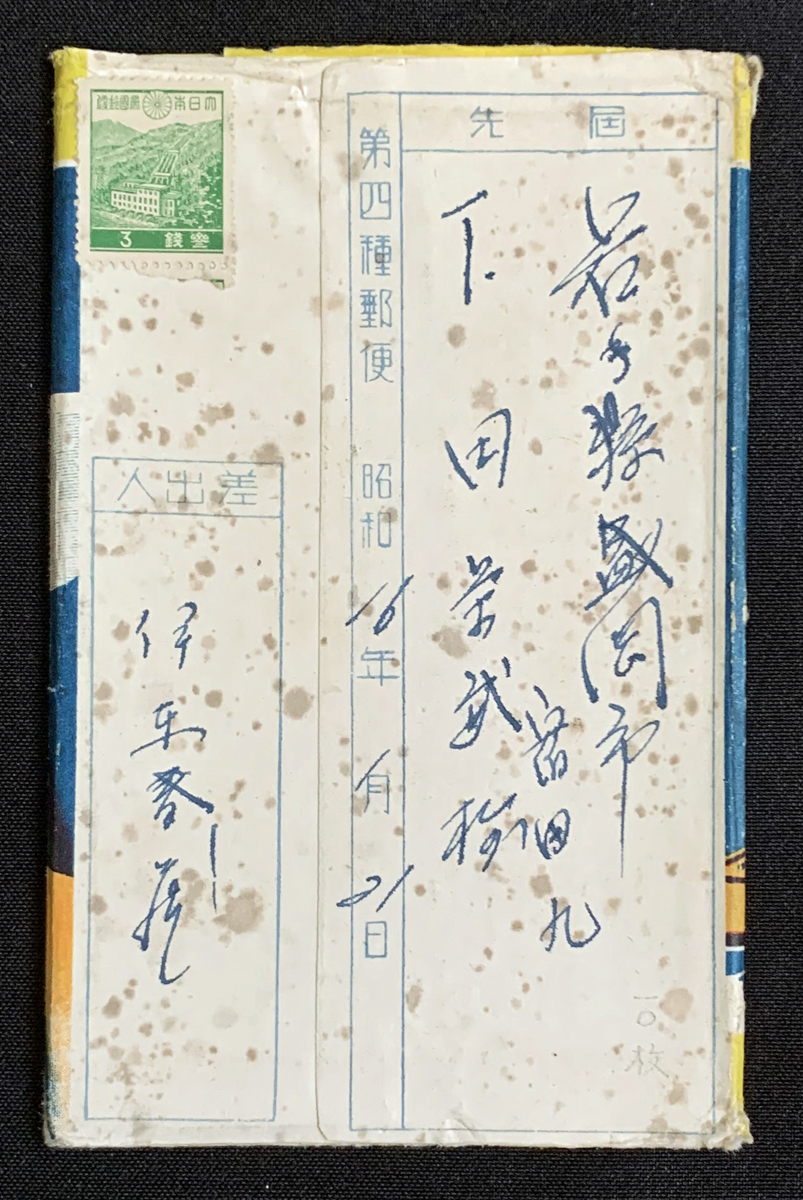 届先
岩手縣盛岡市
田九
下田
様
第四種郵便 昭和16年 月21日
大日本帝國郵便
参銭 3
差出人
伊東
一〇枚